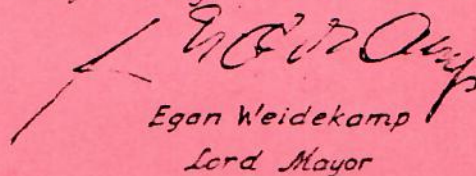 Egon Weidekamp
Lord Mayor